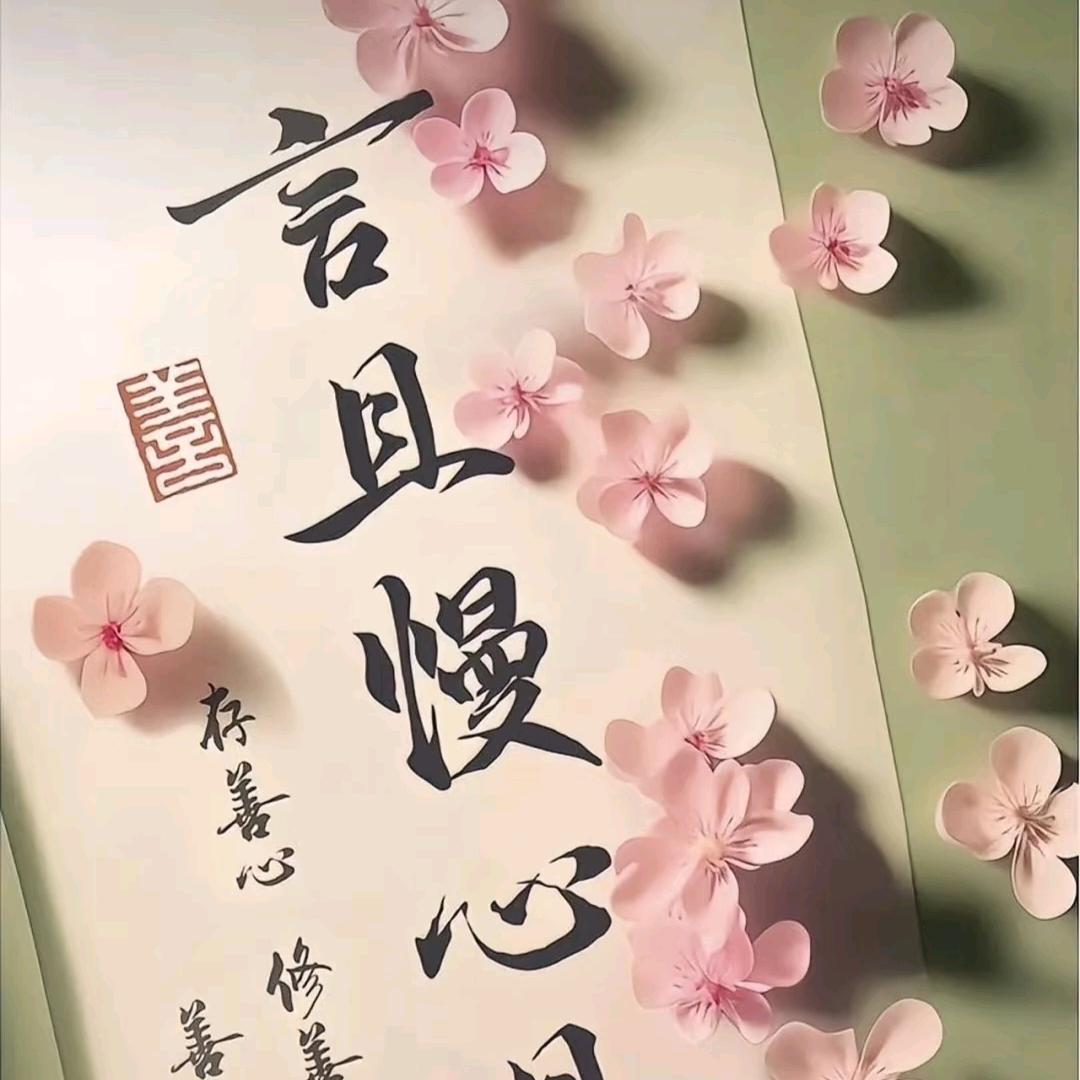 言且慢心
存善心 修善
善